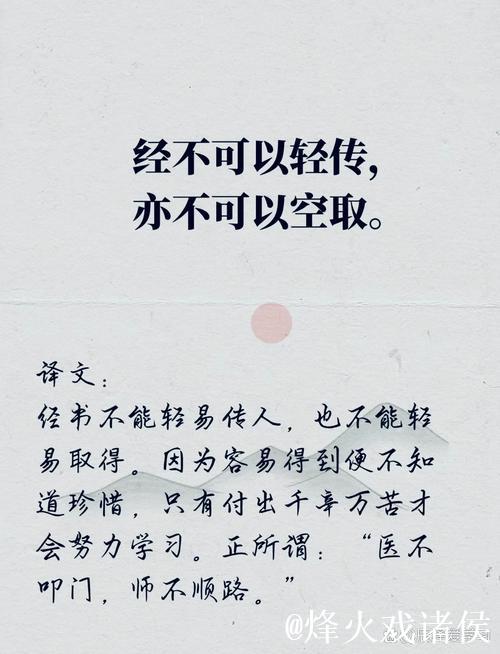 经不可以轻传，
亦不可以空取。
译文：
经书不能轻易传人，也不能轻
易取得。因为容易得到便不知
道珍惜，只有付出千辛万苦才
会努力学习。正所谓：“医不
叩门，师不顺路。”
@烽火戏诸侯